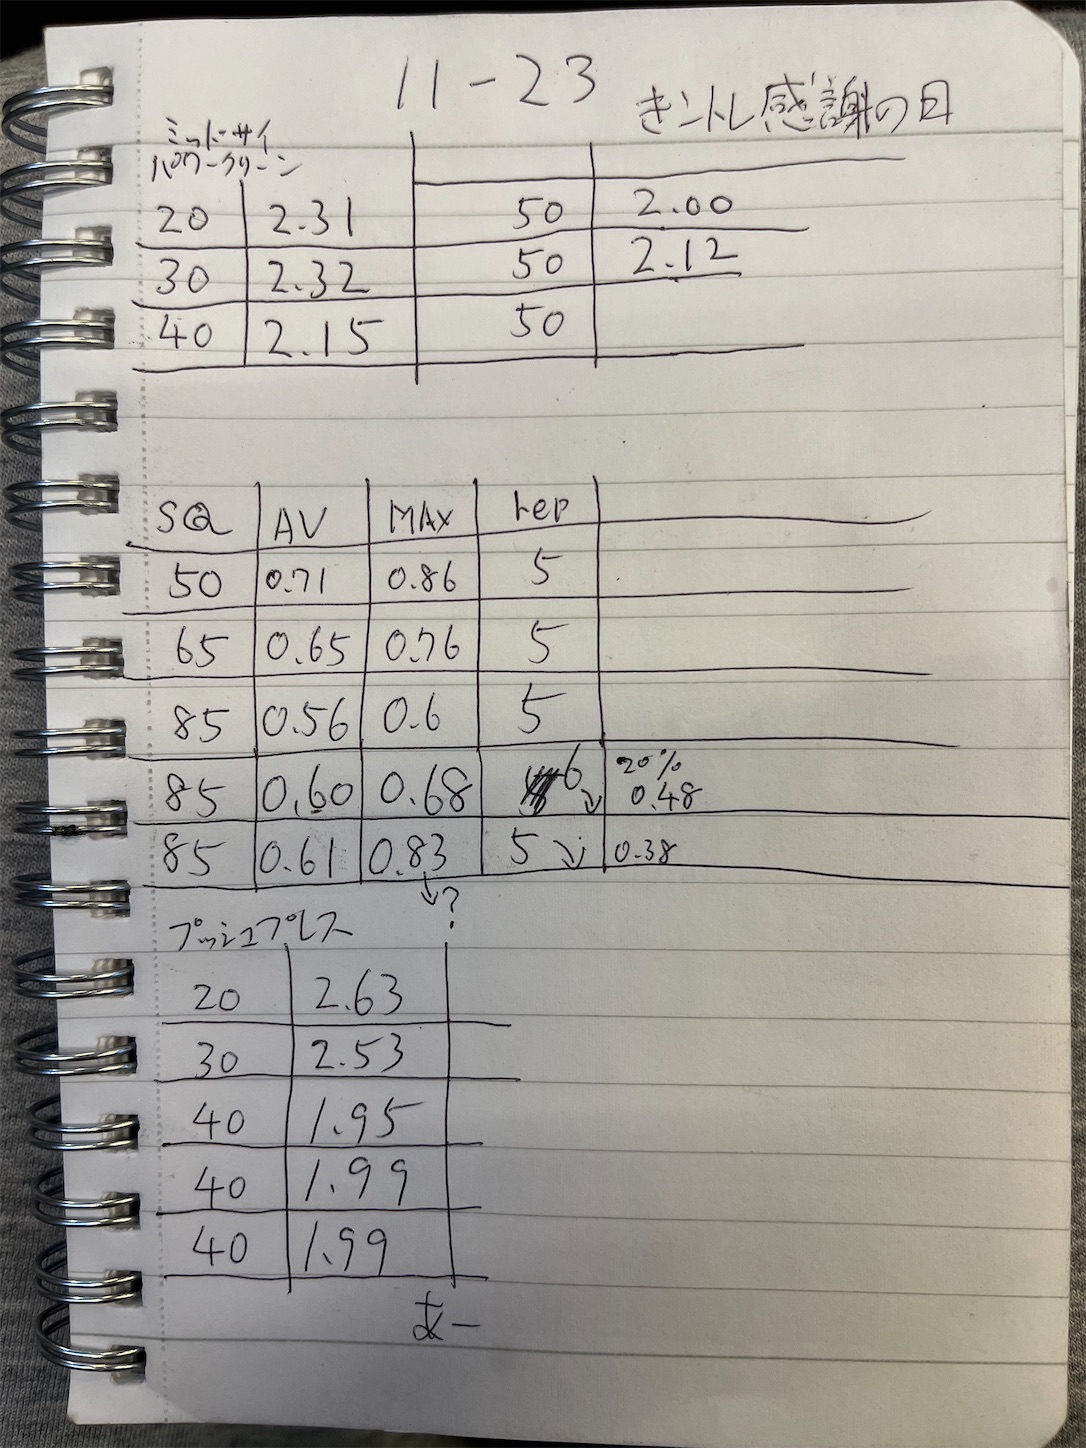 11-23
きントレ感謝の日
ミッドサイ
パワークリーン
20 2.31 50 2.00
30 2.32 50 2.12
40 2.15 50
SQ AV MAX rep
50 0.71 0.86 5
65 0.65 0.76 5
85 0.56 0.6 5
85 0.60 0.68 6↘ 20% 0.48
85 0.61 0.83 5↘ 0.38
↓?
プッシュプレス
20 2.63
30 2.53
40 1.95
40 1.99
40 1.99